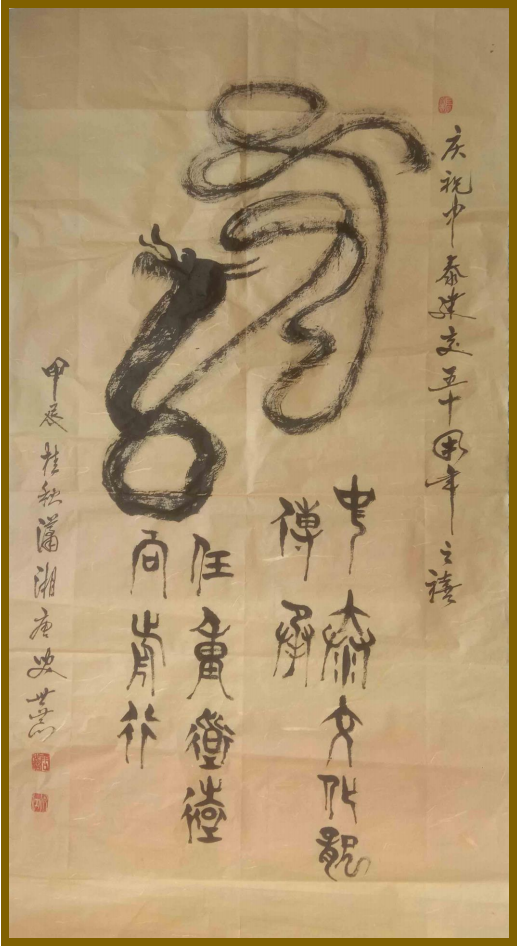 庆祝中泰建交五十周年之禧
中泰文化龍
傳承
任重道遠
向前行
甲辰桂秋瀟湘唐叟世